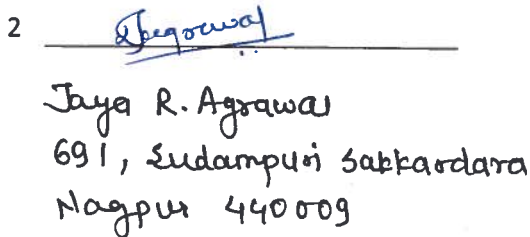 2 JRAgrawal
Jaya R. Agrawal
691, Sudampuri Sakkardara
Nagpur 440009